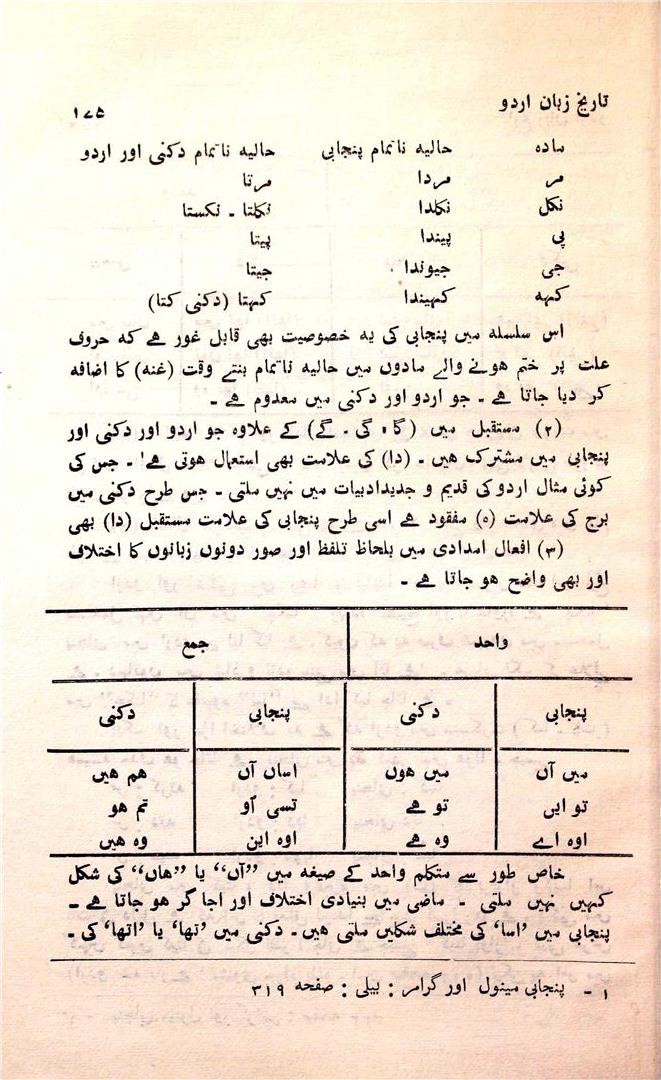 تاریخ زبان اردو ۱۷۵
مادہ حالیہ ناتمام پنجابی حالیہ ناتمام دکنی اور اردو
مر مردا مرتا
نکل نکلدا نکلتا ۔ نکستا
پی پیندا پیتا
جی جیوندا جیتا
کہہ کہیندا کہتا (دکنی کتا)
اس سلسلہ میں پنجابی کی یہ خصوصیت بھی قابل غور ہے کہ حروف
علت پر ختم ہونے والے مادوں میں حالیہ ناتمام بنتے وقت (غنہ) کا اضافہ
کر دیا جاتا ہے ۔ جو اردو اور دکنی میں معدوم ہے ۔
(۲) مستقبل میں (گا ، گی ۔ گے) کے علاوہ جو اردو اور دکنی اور
پنجابی میں مشترک ہیں ۔ (دا) کی علامت بھی استعمال ہوتی ہے۱ ۔ جس کی
کوئی مثال اردو کی قدیم و جدید ادبیات میں نہیں ملتی ۔ جس طرح دکنی میں
برج کی علامت (ہ) مفقود ہے اسی طرح پنجابی کی علامت مستقبل (دا) بھی
(۳) افعال امدادی میں بلحاظ تلفظ اور صور دونوں زبانوں کا اختلاف
اور بھی واضح ہو جاتا ہے ۔
واحد جمع
پنجابی دکنی پنجابی دکنی
میں آں میں ہوں اساں آں ہم ہیں
تو ایں تو ہے تسی آو تم ہو
اوہ اے وہ ہے اوہ این وہ ہیں
خاص طور سے متکلم واحد کے صیغہ میں ”آں“ یا ”ہاں“ کی شکل
کہیں نہیں ملتی ۔ ماضی میں بنیادی اختلاف اور اجاگر ہو جاتا ہے ۔
پنجابی میں ’اسا‘ کی مختلف شکلیں ملتی ہیں۔ دکنی میں ’تھا‘ یا ’اتھا‘ کی ۔
۱ ۔ پنجابی مینول اور گرامر : بیلی : صفحہ ۳۱۹